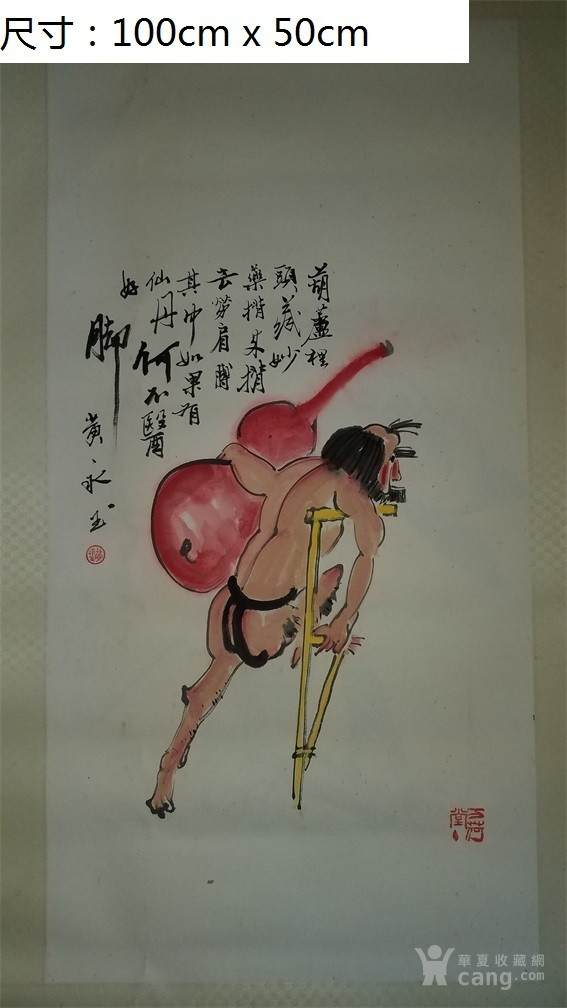 尺寸：100cm x 50cm
葫蘆裡
頭藏妙
藥揹来揹
去勞肩膊
其中如果有
仙丹何不醫
好脚
黄永玉
万荷堂
華夏收藏網
cang.com